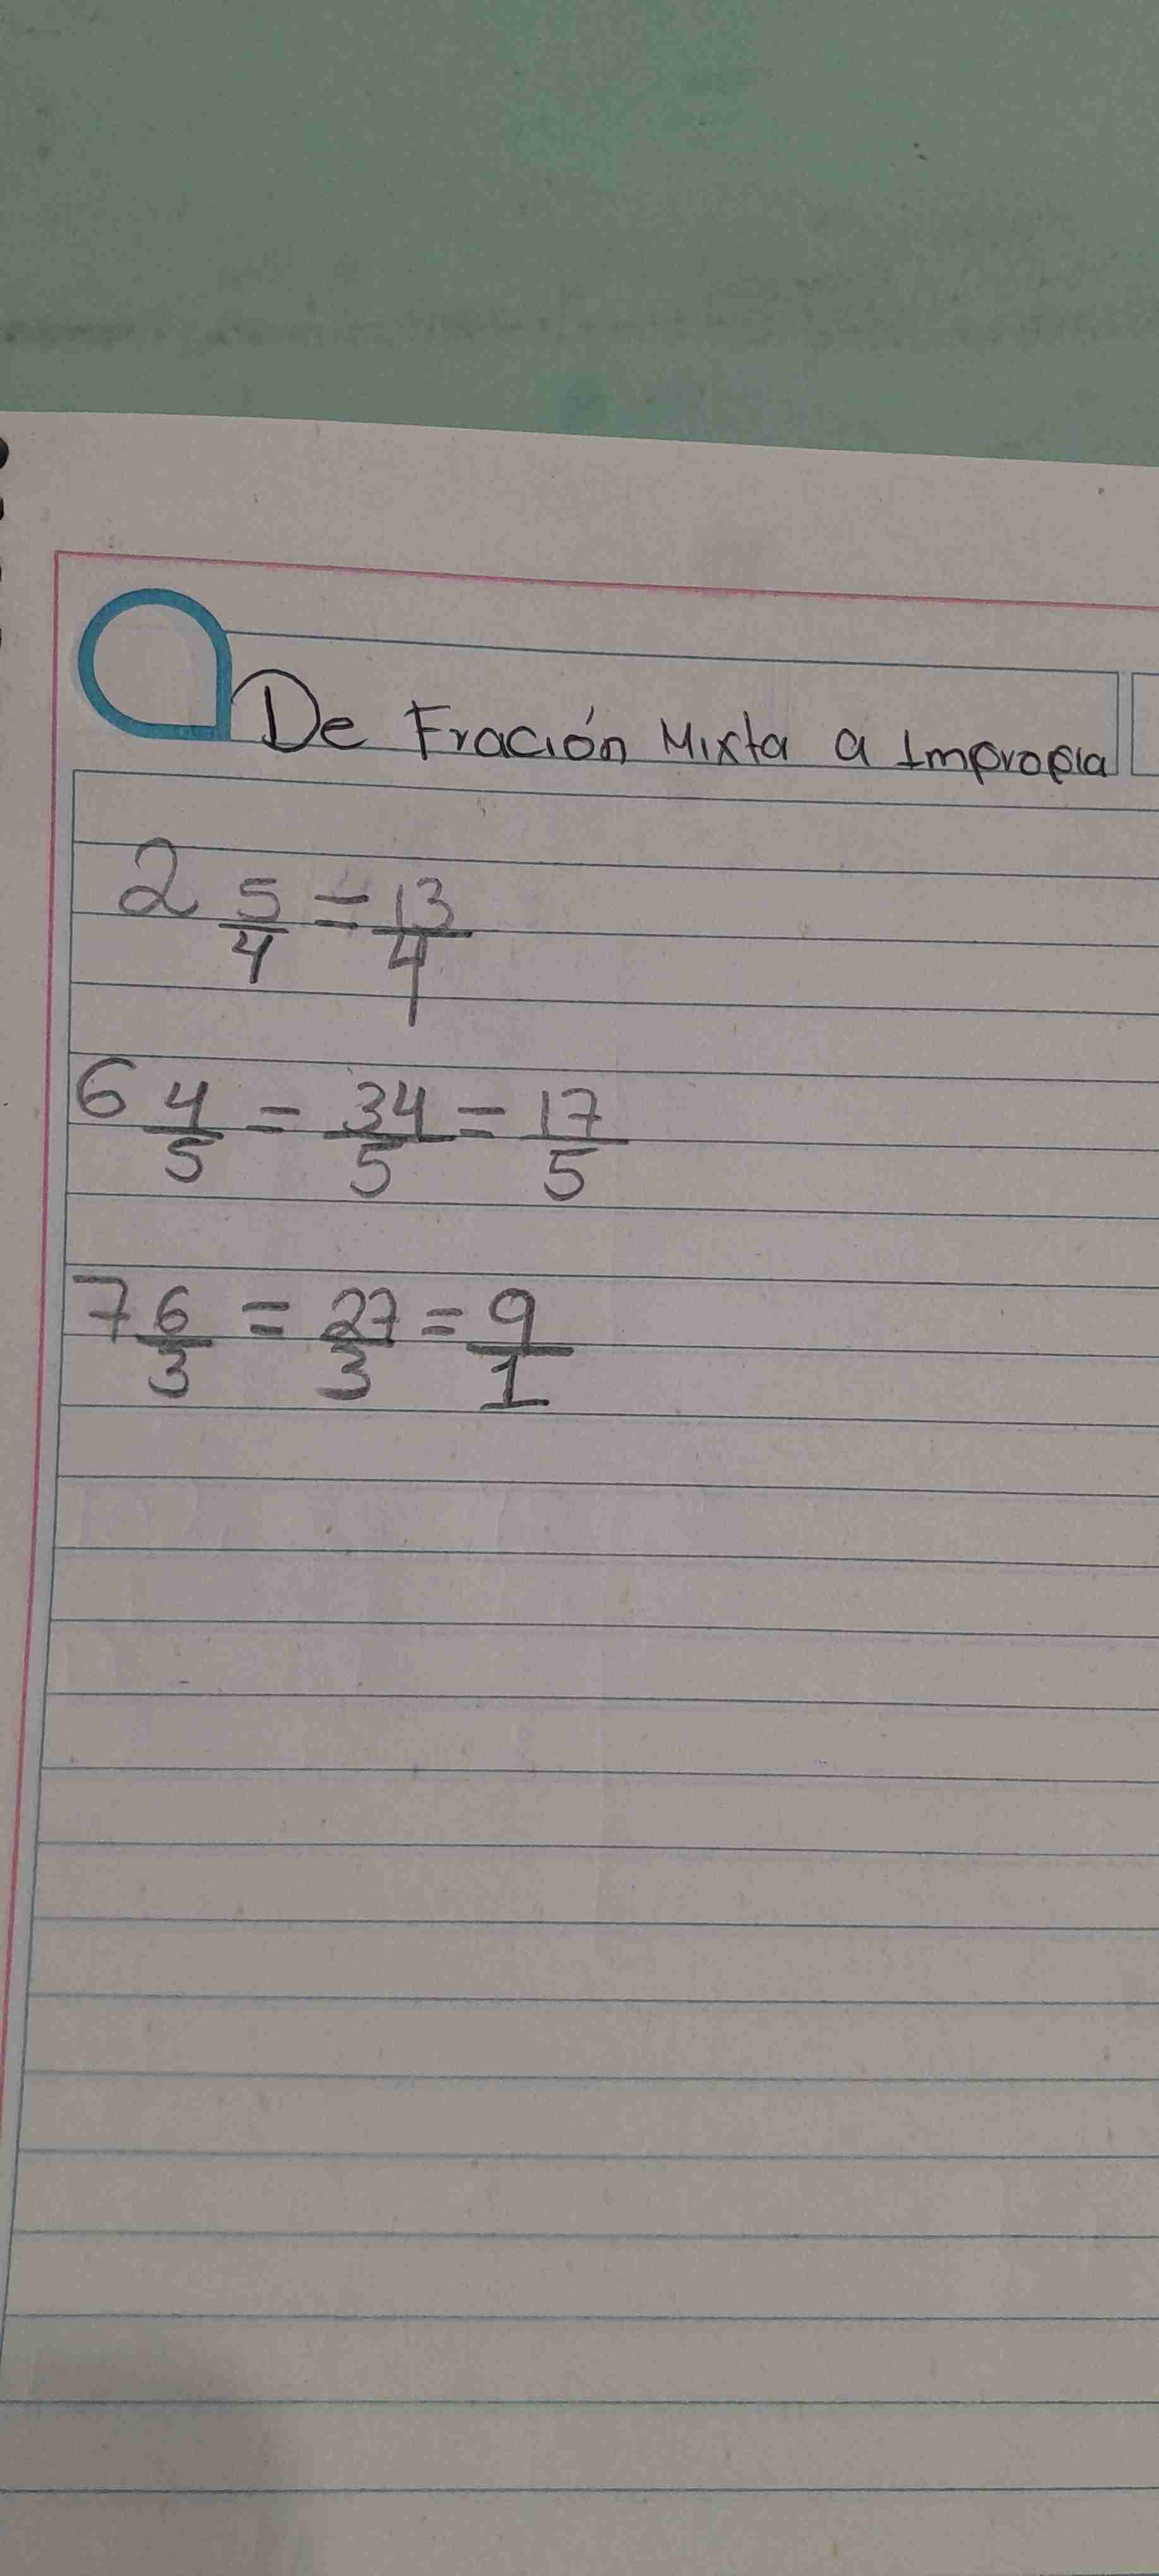 De Fración Mixta a Impropia
2 5/4 = 13/4
6 4/5 = 34/5 = 17/5
7 6/3 = 27/3 = 9/1